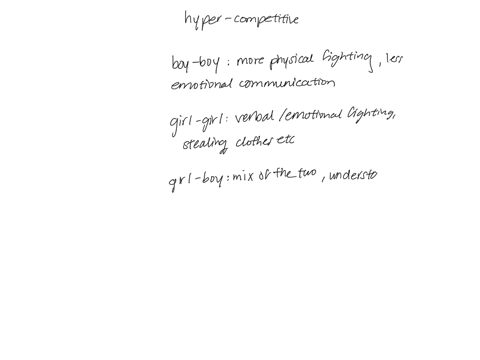 hyper-competitive
boy-boy: more physical fighting, less
emotional communication
girl-girl: verbal/emotional fighting,
stealing clothes etc
girl-boy: mix of the two, understo